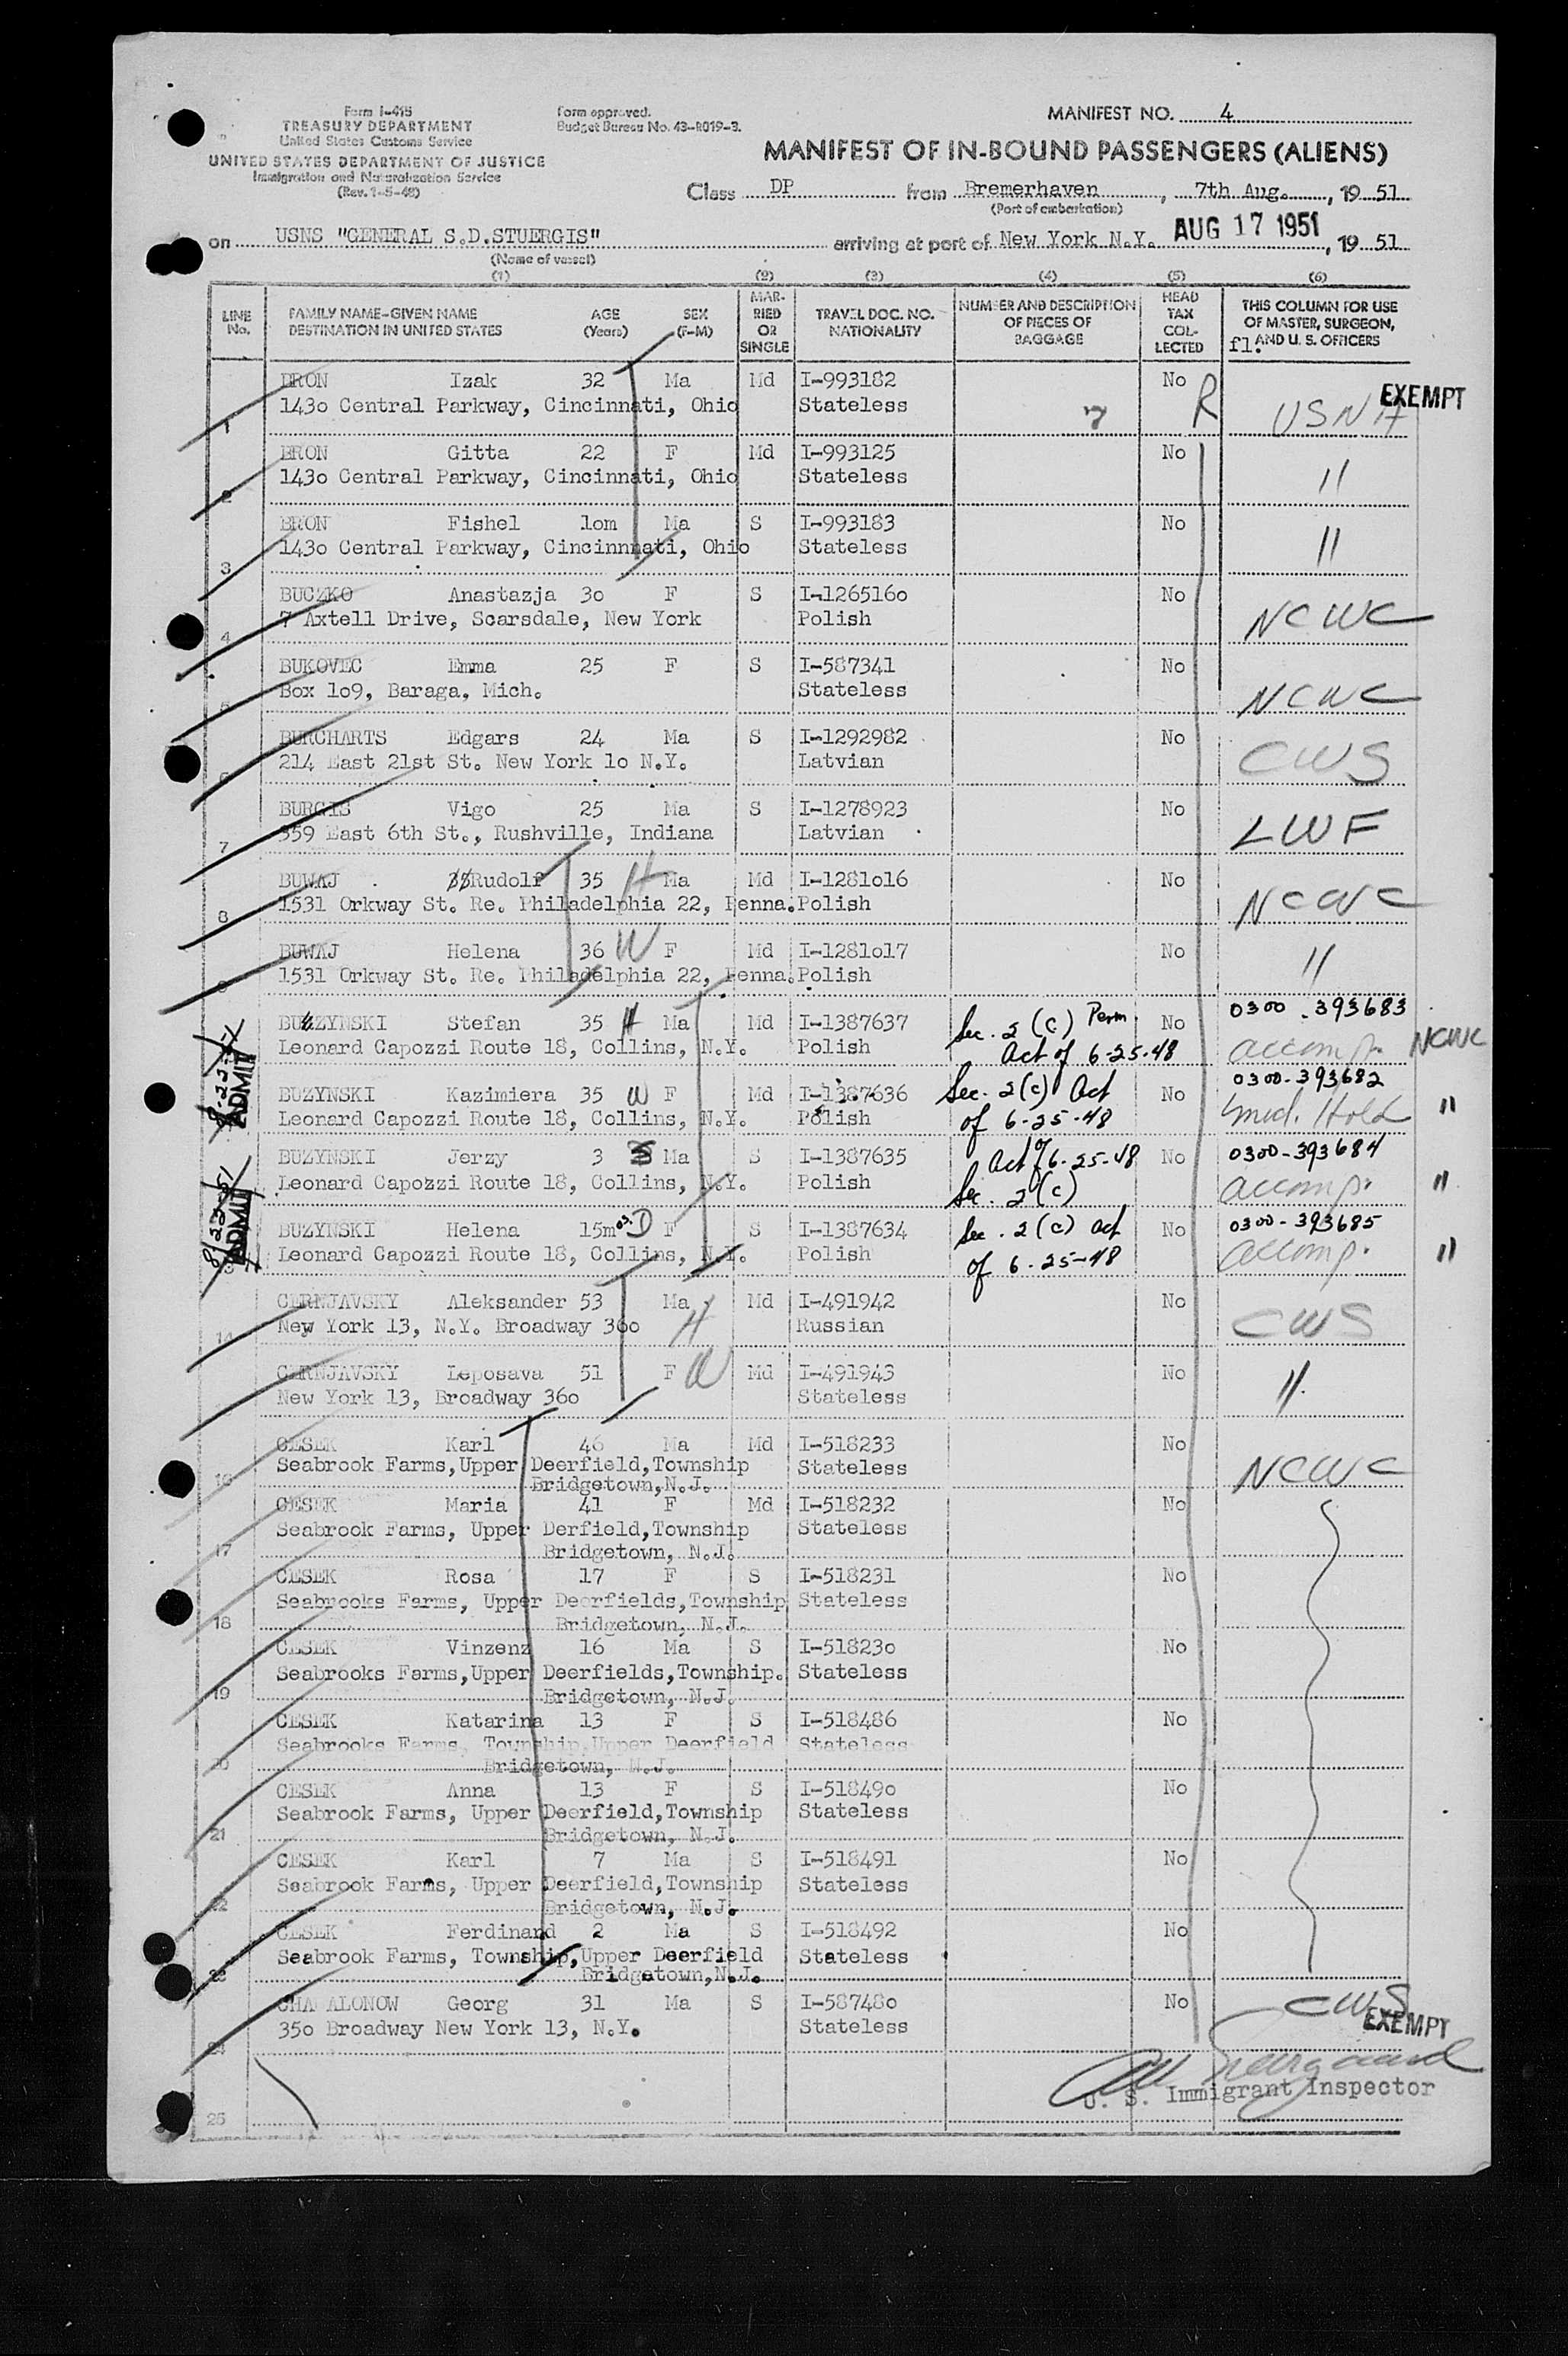 Form I-415
TREASURY DEPARTMENT
United States Customs Service
UNITED STATES DEPARTMENT OF JUSTICE
Immigration and Naturalization Service
(Rev. 1-5-48)
Form approved.
Budget Bureau No. 43-R019-3.
MANIFEST NO. 4
MANIFEST OF IN-BOUND PASSENGERS (ALIENS)
Class DP from Bremerhaven, 7th Aug., 19 51
(Port of embarkation)
on USNS "GENERAL S.D.STUERGIS" arriving at port of New York N.Y. AUG 17 1951, 19 51
(Name of vessel)
(1) (2) (3) (4) (5) (6)
LINE No. FAMILY NAME-GIVEN NAME DESTINATION IN UNITED STATES AGE (Years) SEX (F-M) MARRIED OR SINGLE TRAVEL DOC. NO. NATIONALITY NUMBER AND DESCRIPTION OF PIECES OF BAGGAGE HEAD TAX COLLECTED THIS COLUMN FOR USE OF MASTER, SURGEON, AND U. S. OFFICERS
fl.
1 BRON Izak 32 Ma Md I-993182 No R USNA EXEMPT
143o Central Parkway, Cincinnati, Ohio Stateless 7
2 BRON Gitta 22 F Md I-993125 No "
143o Central Parkway, Cincinnati, Ohio Stateless
3 BRON Fishel 1om Ma S I-993183 No "
143o Central Parkway, Cincinnnati, Ohio Stateless
4 BUCZKO Anastazja 3o F S I-126516o No NCWC
7 Axtell Drive, Scarsdale, New York Polish
5 BUKOVEC Emma 25 F S I-587341 No NCWC
Box 1o9, Baraga, Mich. Stateless
6 BURCHARTS Edgars 24 Ma S I-1292982 No CWS
214 East 21st St. New York 1o N.Y. Latvian
7 BURGIS Vigo 25 Ma S I-1278923 No LWF
359 East 6th St., Rushville, Indiana Latvian
8 BUWAJ Rudolf 35 H Ma Md I-1281o16 No NCWC
1531 Orkway St. Re. Philadelphia 22, Penna. Polish
9 BUWAJ Helena 36 W F Md I-1281o17 No "
1531 Orkway St. Re. Philadelphia 22, Penna. Polish
BUZYNSKI Stefan 35 H Ma Md I-1387637 Sec. 2 (c) Perm. No 0300-393683
Leonard Capozzi Route 18, Collins, N.Y. Polish Act of 6-25-48 accomp. NCWC
ADMIT
BUZYNSKI Kazimiera 35 W F Md I-1387636 Sec. 2(c) Act No 0300-393682
Leonard Capozzi Route 18, Collins, N.Y. Polish of 6-25-48 med. Hold "
BUZYNSKI Jerzy 3 S Ma S I-1387635 Act of 6-25-48 No 0300-393684
Leonard Capozzi Route 18, Collins, N.Y. Polish Sec. 2(c) accomp. "
ADMIT
13 BUZYNSKI Helena 15mos. D F S I-1387634 Sec. 2(c) Act No 0300-393685
Leonard Capozzi Route 18, Collins, N.Y. Polish of 6-25-48 accomp. "
14 CERNJAVSKY Aleksander 53 Ma H Md I-491942 No CWS
New York 13, N.Y. Broadway 36o Russian
CERNJAVSKY Leposava 51 F W Md I-491943 No "
New York 13, Broadway 36o Stateless
16 CESEK Karl 46 Ma Md I-518233 No NCWC
Seabrook Farms,Upper Deerfield,Township Stateless
Bridgetown,N.J.
17 CESEK Maria 41 F Md I-518232 No
Seabrook Farms, Upper Derfield,Township Stateless
Bridgetown, N.J.
18 CESEK Rosa 17 F S I-518231 No
Seabrooks Farms, Upper Deerfields,Township Stateless
Bridgetown, N.J.
19 CESEK Vinzenz 16 Ma S I-51823o No
Seabrooks Farms,Upper Deerfields,Township. Stateless
Bridgetown, N.J.
20 CESEK Katarina 13 F S I-518486 No
Seabrooks Farms, Township,Upper Deerfield Stateless
Bridgetown, N.J.
21 CESEK Anna 13 F S I-51849o No
Seabrook Farms, Upper Deerfield,Township Stateless
Bridgetown, N.J.
22 CESEK Karl 7 Ma S I-518491 No
Seabrook Farms, Upper Deerfield,Township Stateless
Bridgetown, N.J.
23 CESEK Ferdinand 2 Ma S I-518492 No
Seabrook Farms, Township,Upper Deerfield Stateless
Bridgetown,N.J.
24 Georg 31 Ma S I-58748o No CWS
35o Broadway New York 13, N.Y. Stateless EXEMPT
U. S. Immigrant Inspector
25